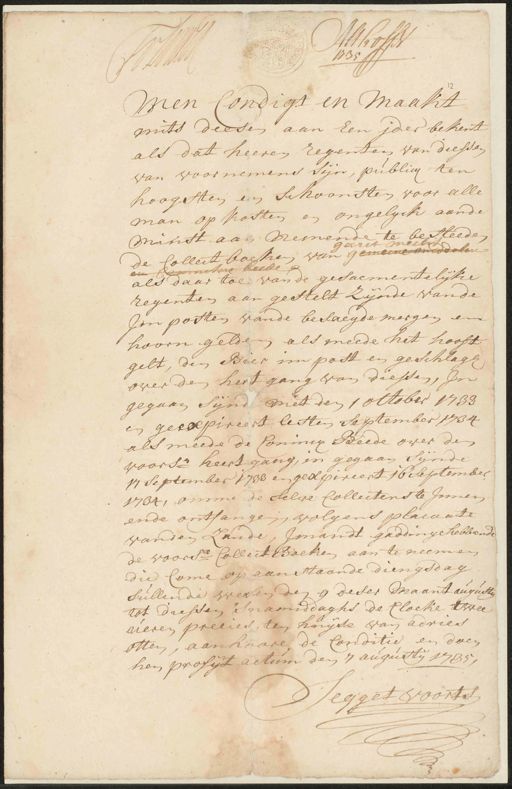 1735
Men Condigt en Maakt
mits deesen aan Een jder bekent
als dat heeren regenten van diessen
van voornemens sijn, publiq ten
hoogsten en schoonsten voor alle
man op kosten en ongelyck aande
minst aan nemende te besteeden
de Collect boecken van
als daar toe vande gesaementelijke
regenten aan gestelt Zijnde vande
Jm posten vande besaeyde mergen en
hoorn gelden als meede het hooft
gelt, den Bier im post en geslagh
over den hert gang van diessen, In
gegaen sijnde met den 1 october 1733
en geexpireert lesten september 1734
als meede de Coninx Beede over den
voors: heert gang, in gegaen sijnde
17 september 1733 en geexpireert 16 september
1734, omme de selve Collecten te Jnnen
ende ontfangen, volgens placaate
vanden Lande, Jemandt gadinge hebbende
de voors: Collect Boecken aan te neemen
die Come op aanstaande diengsdag
sullende weesen den 9 deser Maant augusty
tot diessen Snamiddaghs de Clocke twee
uieren precies, ten huyse van adries
otten, aanhoore de Conditie en doen
hen profyt actum den 7 augusty 1735,
Segget voorts